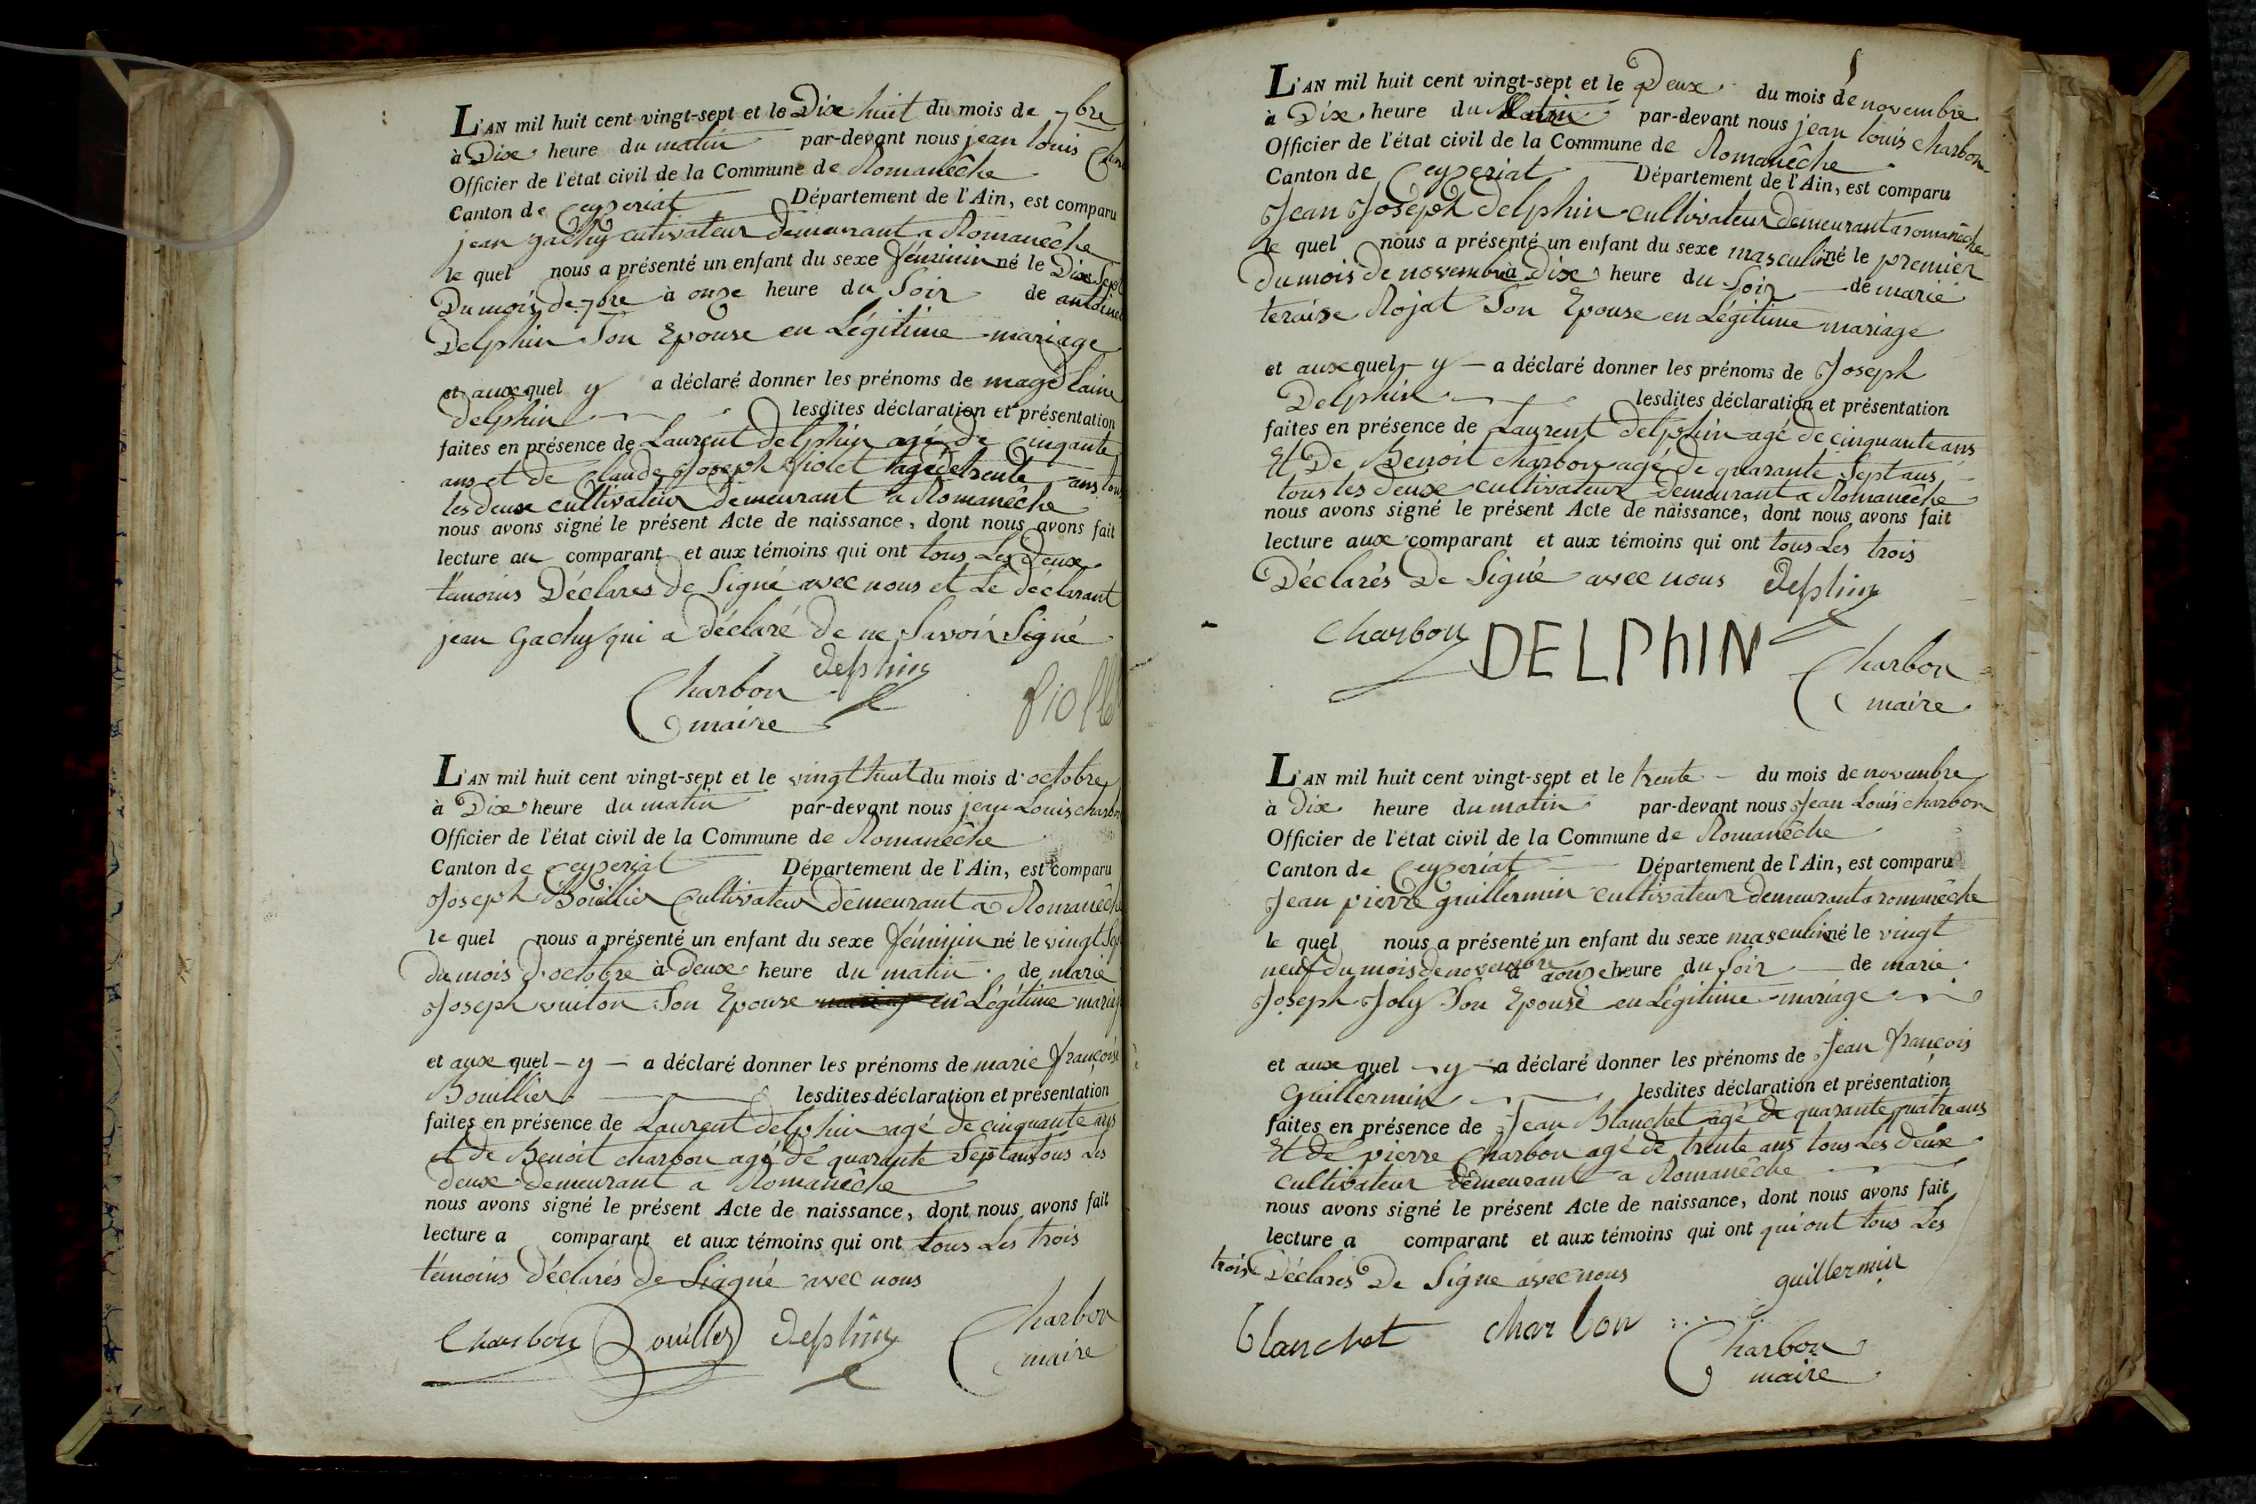 L'AN mil huit cent vingt-sept et le Dix huit du mois de 7bre
à Dix heure du matin par-devant nous jean louis
Officier de l'état civil de la Commune de Romanêche
Canton de Ceyzeriat Département de l'Ain, est comparu
jean gachy cutivateur demeurant a Romanêche
le quel nous a présenté un enfant du sexe féminin né le Dix Sept
Du mois de 7bre à onze heure du Soir de antoinet
Delphin Son Epouse en Légitime mariage
et aux quel y a déclaré donner les prénoms de magdelaine
delphin lesdites déclaration et présentation
faites en présence de Laurent delphin agé de cinqante
ans et de Claude Joseph fiolet agé de trente ans tous
les deux cultivateur demeurant a Romanêche
nous avons signé le présent Acte de naissance, dont nous avons fait
lecture au comparant et aux témoins qui ont tous Les Deux
témoins Déclares de Signé avec nous et Le déclarant
jean gachy qui a déclaré de ne Savoir Signé
delphin
Charbon
maire
L'AN mil huit cent vingt-sept et le vingt huit du mois d'octobre
à Dix heure du matin par-devant nous jean Louis charbon
Officier de l'état civil de la Commune de Romanêche
Canton de Ceyzeriat Département de l'Ain, est comparu
Joseph Bouillier Cultivateur Demeurant a Romanêche
le quel nous a présenté un enfant du sexe féminin né le vingt Sept
du mois d'octobre à deux heure du matin de marie
Joseph vuiton Son Epouse en Légitime mariage
et aux quel y a déclaré donner les prénoms de marie françoise
Bouillier lesdites déclaration et présentation
faites en présence de Laurent delphin agé de cinquante ans
et de Benoit charbon agé de quarante Sept ans tous Les
deux demeurant a Romanêche
nous avons signé le présent Acte de naissance, dont nous avons fait
lecture a comparant et aux témoins qui ont tous Les trois
témoins déclarés de Siagné avec nous
Charbon Bouiller delphin Charbon
maire
L'AN mil huit cent vingt-sept et le Deux du mois de novembre
à Dix heure du Matin par-devant nous jean louis charbon
Officier de l'état civil de la Commune de Romanêche
Canton de Ceyzeriat Département de l'Ain, est comparu
Jean Joseph delphin cultivateur demeurant a romanêche
le quel nous a présenté un enfant du sexe masculin né le premier
du mois de novembre à Dix heure du Soir de marie
teraise Rojat Son Epouse en Légitime mariage
et aux quel y a déclaré donner les prénoms de Joseph
Delphin lesdites déclaration et présentation
faites en présence de Laurent delphin agé de cinquante ans
Et De Benoit charbon agé de quarante Sept ans
tous les deux cultivateur demeurant a Romanêche
nous avons signé le présent Acte de naissance, dont nous avons fait
lecture aux comparant et aux témoins qui ont tous Les trois
Déclarés De Signé avec nous delphin
Charbon DELPhIN Charbon
maire
L'AN mil huit cent vingt-sept et le trente du mois de novembre
à Dix heure du matin par-devant nous Jean Louis charbon
Officier de l'état civil de la Commune de Romanêche
Canton de Ceyzeriat Département de l'Ain, est comparu
Jean pierre guillermin cultivateur demeurant a romanêche
le quel nous a présenté un enfant du sexe masculin né le vingt
neuf du mois de novembre à heure du Soir de marie
Joseph Joly Son Epouse en Légitime mariage
et aux quel y a déclaré donner les prénoms de Jean françois
Guillermin lesdites déclaration et présentation
faites en présence de Jean Blanchet agé de quarante quatre ans
Et de pierre Charbon agé de trente ans tous Les deux
cultivateur demeurant a Romanêche
nous avons signé le présent Acte de naissance, dont nous avons fait
lecture a comparant et aux témoins qui ont qui ont tous Les
trois Déclares De Signe avec nous guillermin
blanchet charbon
Charbon
maire